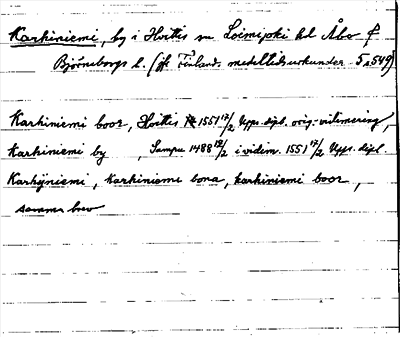 Karhiniemi, by i Hvittis sn Loimijoki hd Åbo o
Björneborgs l. (jfr Finlands medeltidsurkunder 5 s 549)
Karhiniemi boor, Hvittis 1551 17/2 Upps. dipl. orig.-vidimering,
Karkiniemi by , Sampu 1488 12/2 i vidim. 1551 17/2 Upps. dipl.
Karhijniemi, Karkiniemi bona, karkiniemi boor,
samma brev